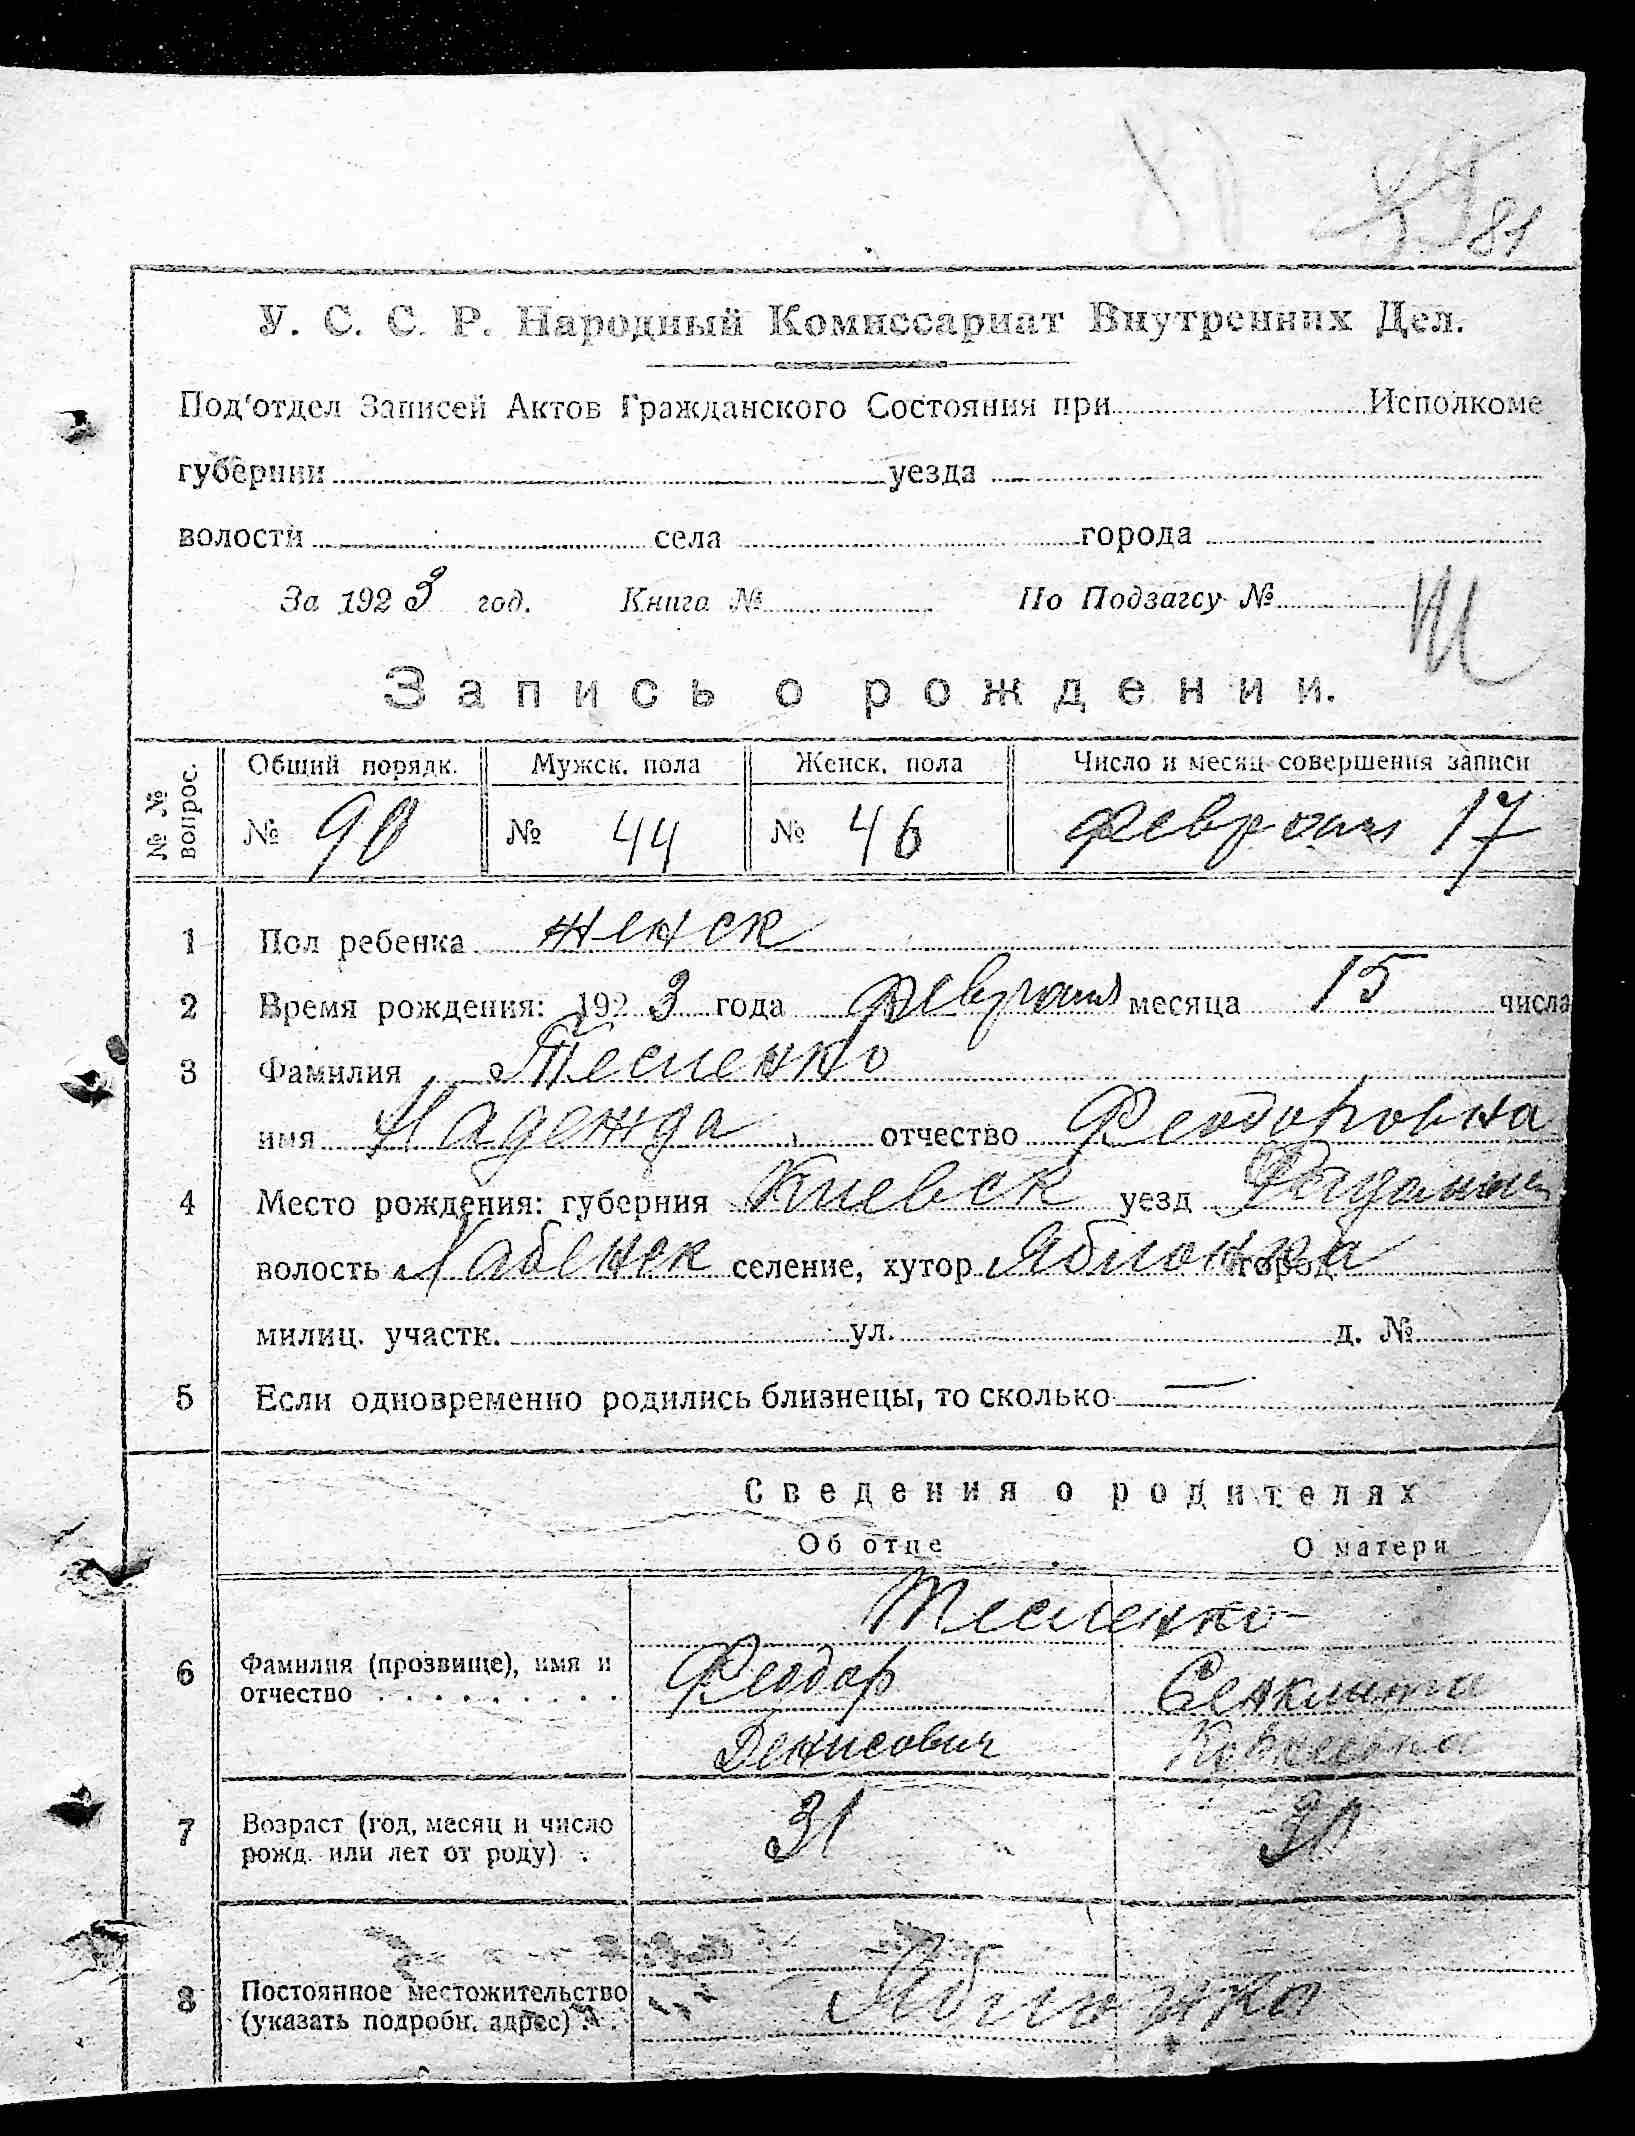 80 79 81
У. С. С. Р. Народный Комиссариат Внутренних Дел.
Под'отдел Записей Актов Гражданского Состояния при Исполкоме
губернии уезда
волости села города
За 1923 год. Книга № По Подзагсу №
Запись о рождении.
№ № вопрос.
Общий порядк. Мужск. пола Женск. пола Число и месяц совершения записи
№ 90 № 44 № 46 февраля 17
1 Пол ребенка женск
2 Время рождения: 1923 года февраля месяца 15 числа
3 Фамилия Тесленко
имя Надежда отчество Феодоровна
4 Место рождения: губерния Киевск уезд
волость Хабенск селение, хутор Яблонка город
милиц. участк. ул. д. №
5 Если одновременно родились близнецы, то сколько —
Сведения о родителях
Об отце О матери
Тесленко
6 Фамилия (прозвище), имя и отчество Феодор Сенклита
Денисович
7 Возраст (год, месяц и число рожд. или лет от роду) 31 30
8 Постоянное местожительство (указать подробн. адрес) Яблонка